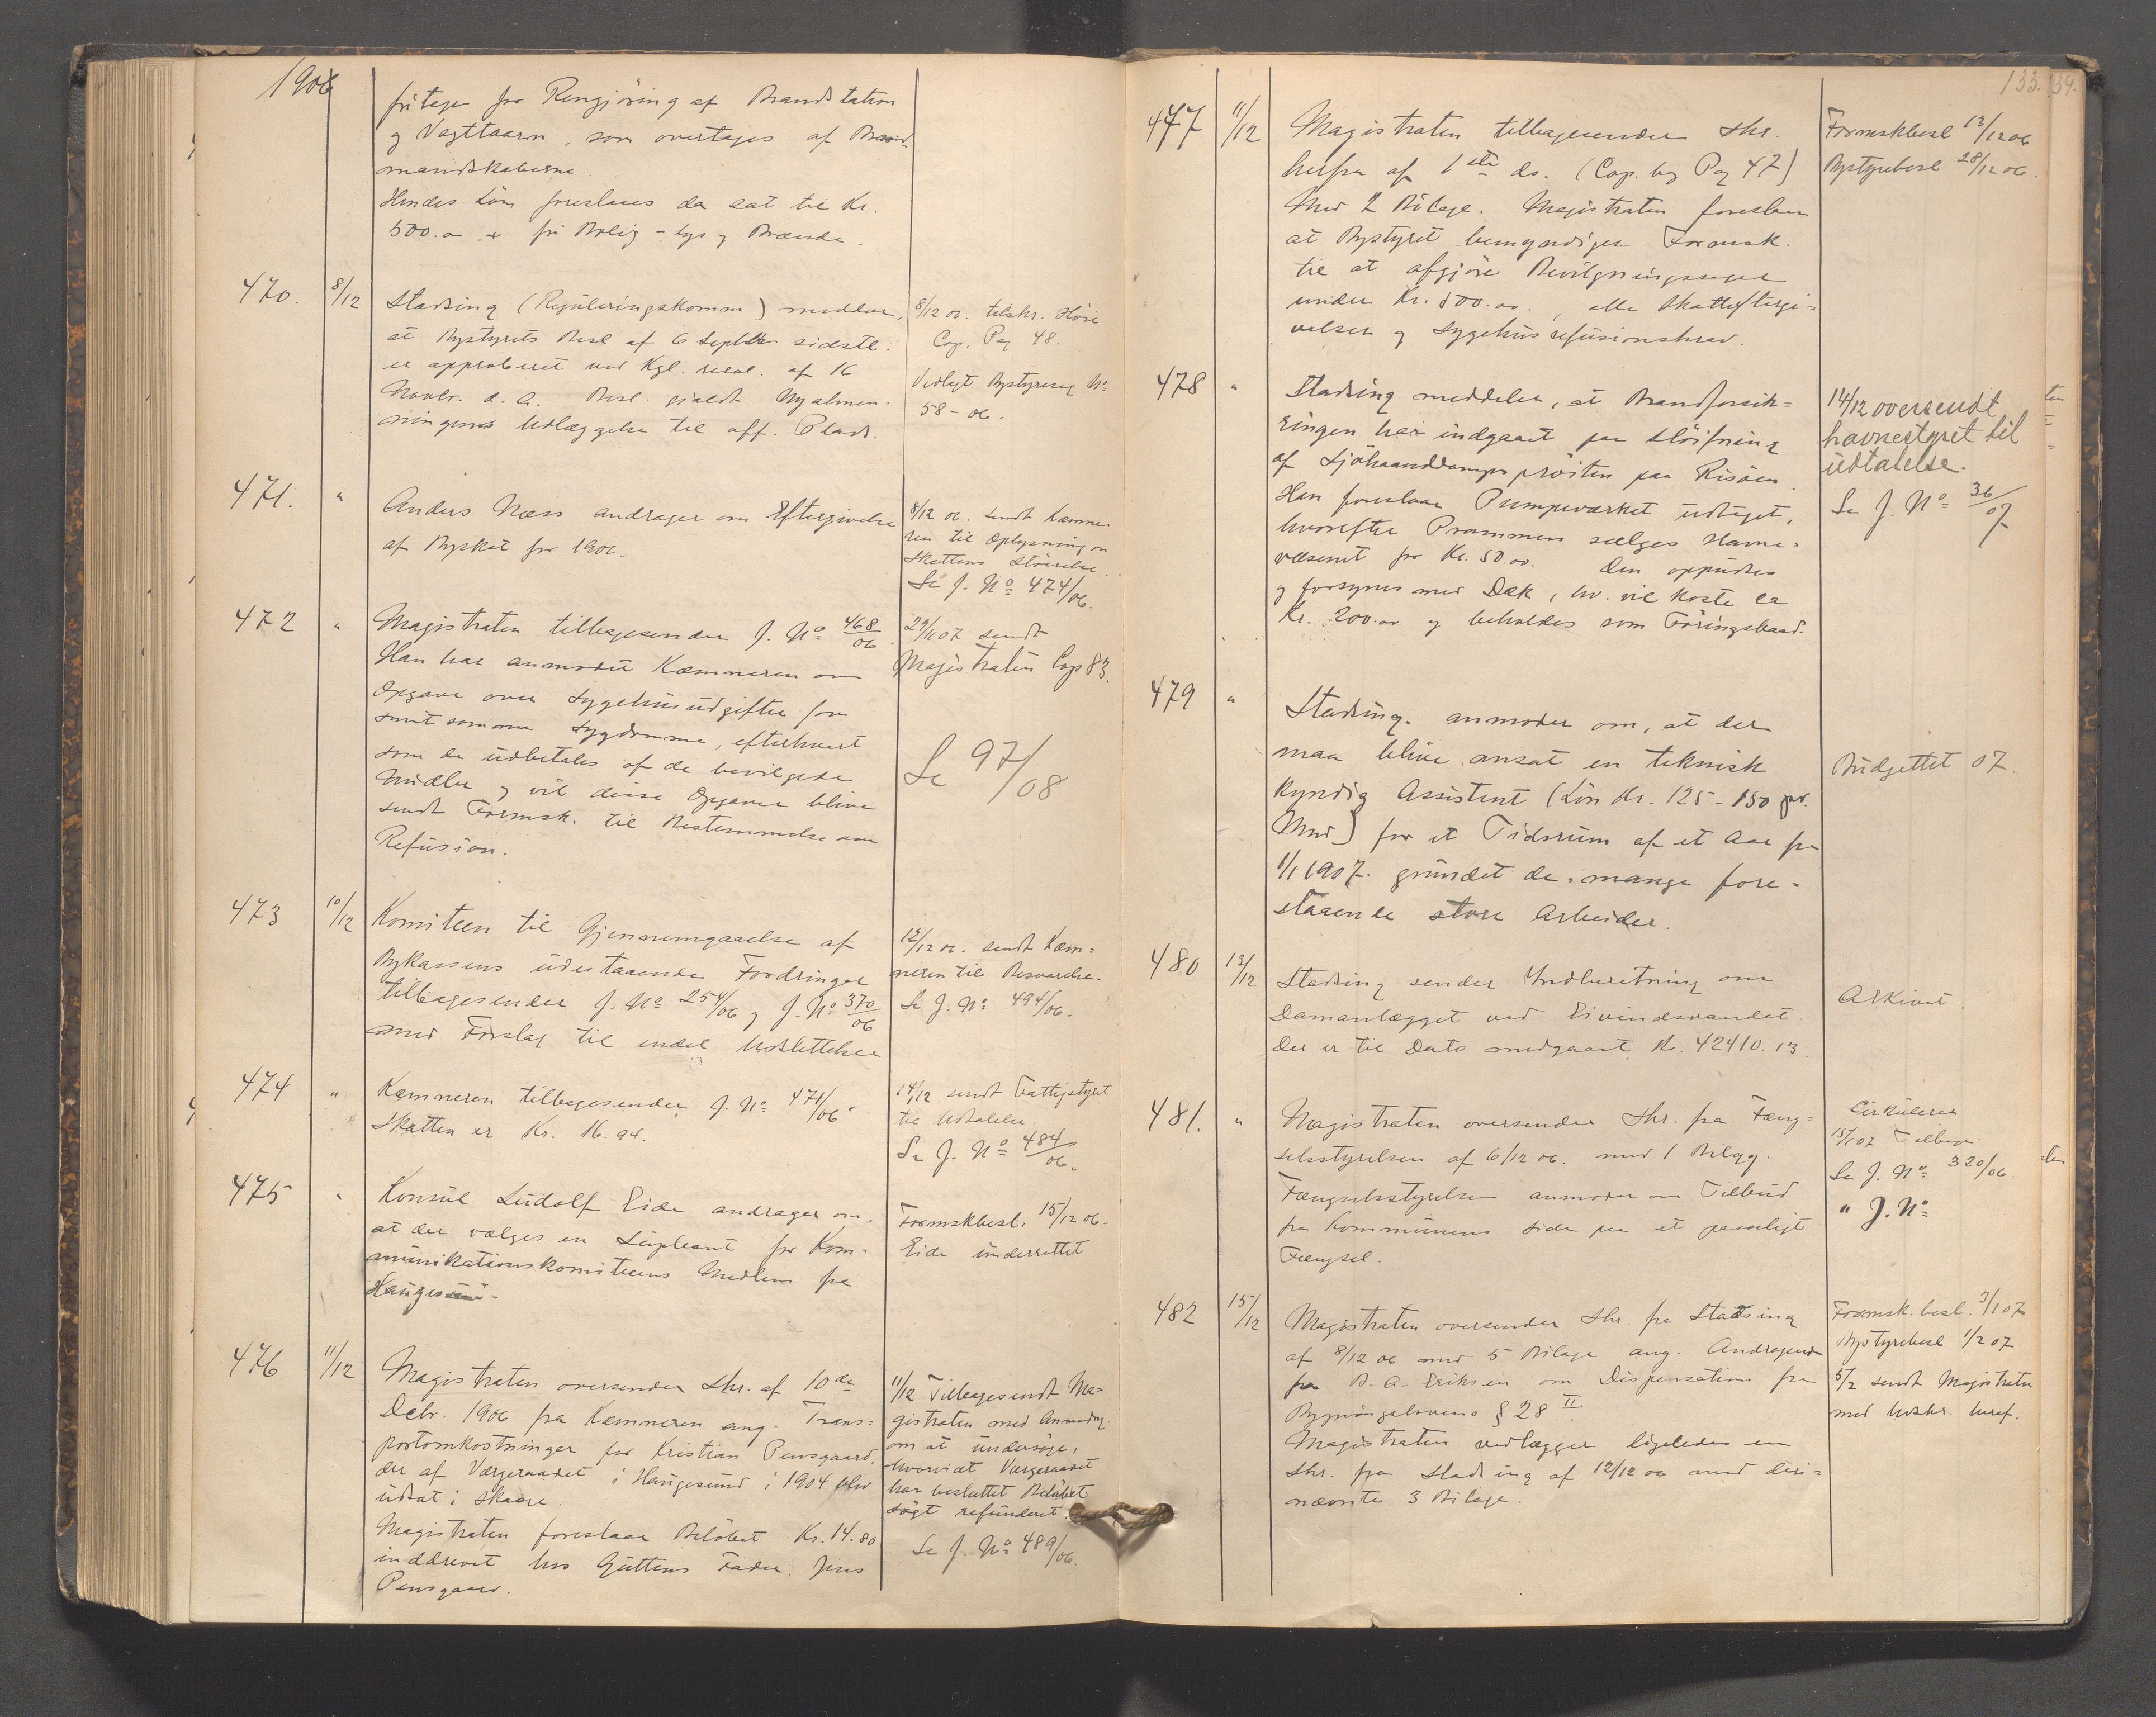 1906
fritages for Rengjöring af Brandstation
og Vagttaarn, som overtages af Brand-
mandskaberne.
Hendes Lön foreslaaes da sat til Kr.
500.00 + fri Bolig - Lys og Brænde.
470. 8/12 Stadsing (Reguleringskomm) meddeler,
at Bystyrets Besl af 6 Septbr sidstl.
er approberet ved Kgl. resol. af 16
Novbr. d. A. Besl. gjaldt Nyalmen-
ningens Udlæggelse til off. Plads.
8/12 06. tilskr. Höie
Cop. Pag 48.
Vedlagt Bystyresag No
58-06.
471. " Anders Næss andrager om Eftergivelse
af Byskat for 1906.
8/12 06. sendt Kæmne-
ren til Oplysning om
Skattens Störrelse.
Se J. No 474/06.
472 " Magistraten tilbagesender J. No 468/06.
Han har anmodet Kæmneren om
Opgave over Sygehusudgifter for
smitsomme Sygdomme, efterhvert
som de udbetales af de bevilgede
Midler og vil disse Opgaver blive
sendt Formsk. til Bestemmelse om
Refusion.
29/1 07 sendt
Magistraten Cop 83.
Se 97/08
473 10/12 Komiteen til Gjennemgaaelse af
Bykassens udestaaende Fordringer
tilbagesender J. No 254/06 og J. No 370/06
med Forslag til endel Udslettelser
12/12 06. sendt Kæm-
neren til Besvarelse.
Se J. No 494/06.
474 " Kæmneren tilbagesender J. No 471/06.
Skatten er Kr. 16.94.
14/12 sendt Fattigstyret
til Udtalelse.
Se J. No 484/06.
475 " Konsul Ludolf Eide andrager om,
at der vælges en Supleant for Kom-
munikationskomiteens Medlem fra
Haugesund.
Formskbesl. 15/12 06.
Eide underrettet
476 11/12 Magistraten oversender Skr. af 10de
Debr. 1906 fra Kæmneren ang. Trans-
portomkostninger for Kristian Pensgaard,
der af Værgeraadet i Haugesund i 1904 blev
udsat i Skaare.
Magistraten foreslaar Belöbet Kr. 14.80
inddrevet hos Guttens Fader. Jens
Pensgaard.
11/12 Tilbagesendt Ma-
gistraten med Anmodng.
om at undersöge,
hvorvidt Værgeraadet
har besluttet Belöbet
sögt refunderet.
Se J. No 489/06.
133. 34.
477 11/12 Magistraten tilbagesender Skr.
herfra af 1ste ds. (Cop. bog Pag 47)
Med 2 Bilage. Magistraten foreslaar
at Bystyret bemyndiger Formsk.
til at afgjöre Bevilgningssager
under Kr. 500.00, alle Skatteftergi-
velser og Sygehusrefusionskrav.
Formskbesl 13/12 06
Bystyrebesl 28/12 06.
478 " Stadsing meddeler, at Brandforsik-
ringen har indgaaet paa Slöifning
af Sjöhaanddampspröiten paa Risöen.
Han foreslaar Pumpeværket udtaget,
hvorefter Prammen sælges Havne-
væsenet for Kr. 50.00. Den oppudses
og forsynes med Dæk, hv. vil koste ca
Kr. 200.00 og beholdes som Föringsbaad.
14/12 oversendt
havnestyret til
udtalelse.
Se J. No 36/07
479 " Stadsing. anmoder om, at der
maa blive ansat en teknisk
Kyndig Assistent (Lön Kr. 125-150 pr.
Mnd) for et Tidsrum af et Aar fra
1/1 1907. grundet de mange fore-
staaende store Arbeider.
Budgettet 07.
480 13/12 Stadsing sender Indberetning om
Damanlægget ved Eivindsvandet.
Der er til Dato medgaaet Kr. 42410.13.
Arkivet.
481. " Magistraten oversender Skr. fra Fæng-
selsstyrelsen af 6/12 06. med 1 Bilag.
Fængselsstyrelsen anmoder om Tilbud
fra Kommunens Side paa et passeligt
Fængsel.
Cirkulerer
15/1 07 Tilbage
Se J. No 320/06.
" J. No
482 15/12 Magistraten oversender Skr. fra Stadsing
af 8/12 06 med 5 Bilage ang. Andragende
fra B. A. Eriksen om Dispensation fra
Bygningslovens § 28 II.
Magistraten vedlægger ligeledes en
Skr. fra Stadsing af 12/12 06 med deri-
nævnte 3 Bilage.
Formsk. besl. 3/1 07
Bystyrebesl 1/2 07
5/2 sendt Magistraten
med Udskr. heraf.